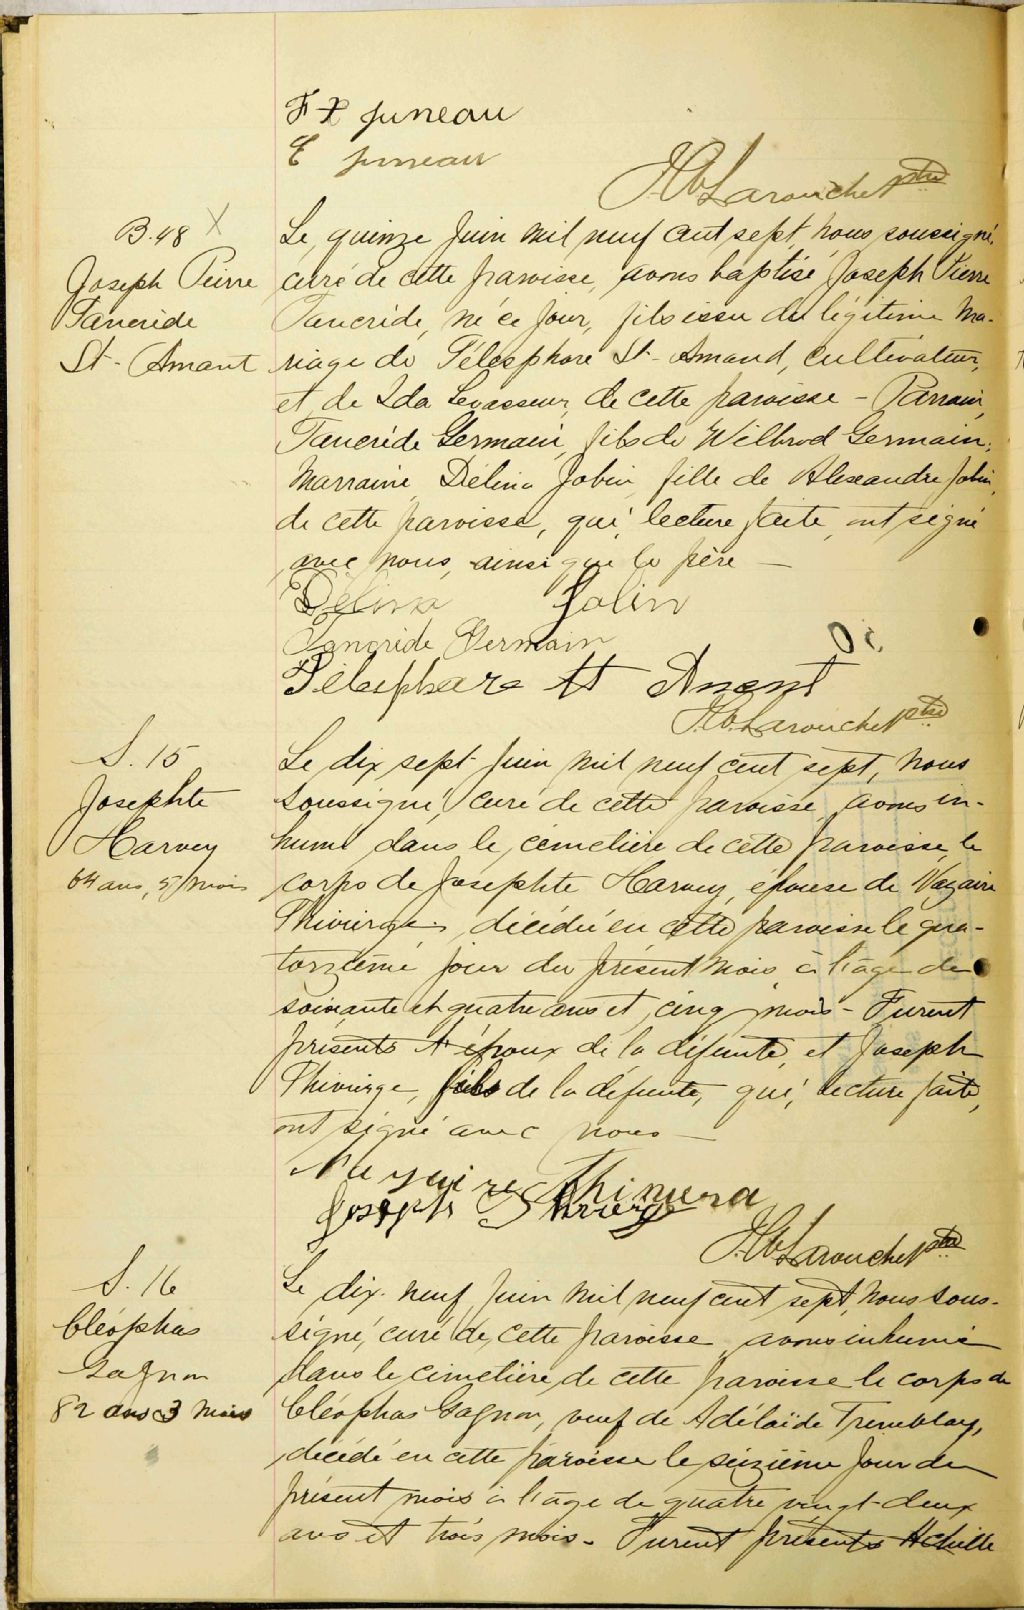 F X Juneau
E Juneau
J.Ub Larouche Ptre
B. 48 X
Joseph Pierre
Tancrède
St-Amant
Le quinze Juin mil neuf cent sept, nous soussigné,
curé de cette paroisse, avons baptisé Joseph Pierre
Tancrède, né ce jour, fils issu du légitime ma-
riage de Télesphore St-Amand, cultivateur,
et de Ida Levasseur, de cette paroisse - Parrain,
Tancrède Germain, fils de Wilbrod Germain;
Marraine, Délina Jobin, fille de Alexandre Jobin,
de cette paroisse, qui, lecture faite, ont signé
avec nous, ainsi que le père -
Délina Jobin
Tancride Germain
Télesphore St Amant
J.Ub. Larouche Ptre
S. 15
Josephte
Harvey
64 ans, 5 mois
Le dix sept Juin mil neuf cent sept, nous
soussigné, curé de cette paroisse, avons in-
humé dans le cimetière de cette paroisse, le
corps de Josephte Harvey, épouse de Nazaire
Thivierge, décédée en cette paroisse le qua-
torzième jour du présent mois, à l'âge de
soixante et quatre ans et cinq mois - Furent
présents l'époux de la défunte, et Joseph
Thivierge, fils de la défunte, qui, lecture faite,
ont signé avec nous -
Joseph
J.Ub Larouche Ptre
S. 16
Cléophas
Gagnon
82 ans 3 mois
Le dix-neuf Juin mil neuf cent sept, nous sous-
signé, curé de cette paroisse, avons inhumé
dans le cimetière de cette paroisse le corps de
Cléophas Gagnon, veuf de Adélaïde Tremblay,
décédé en cette paroisse le seizième jour du
présent mois à l'âge de quatre vingt-deux
ans et trois mois - Furent présents Achille